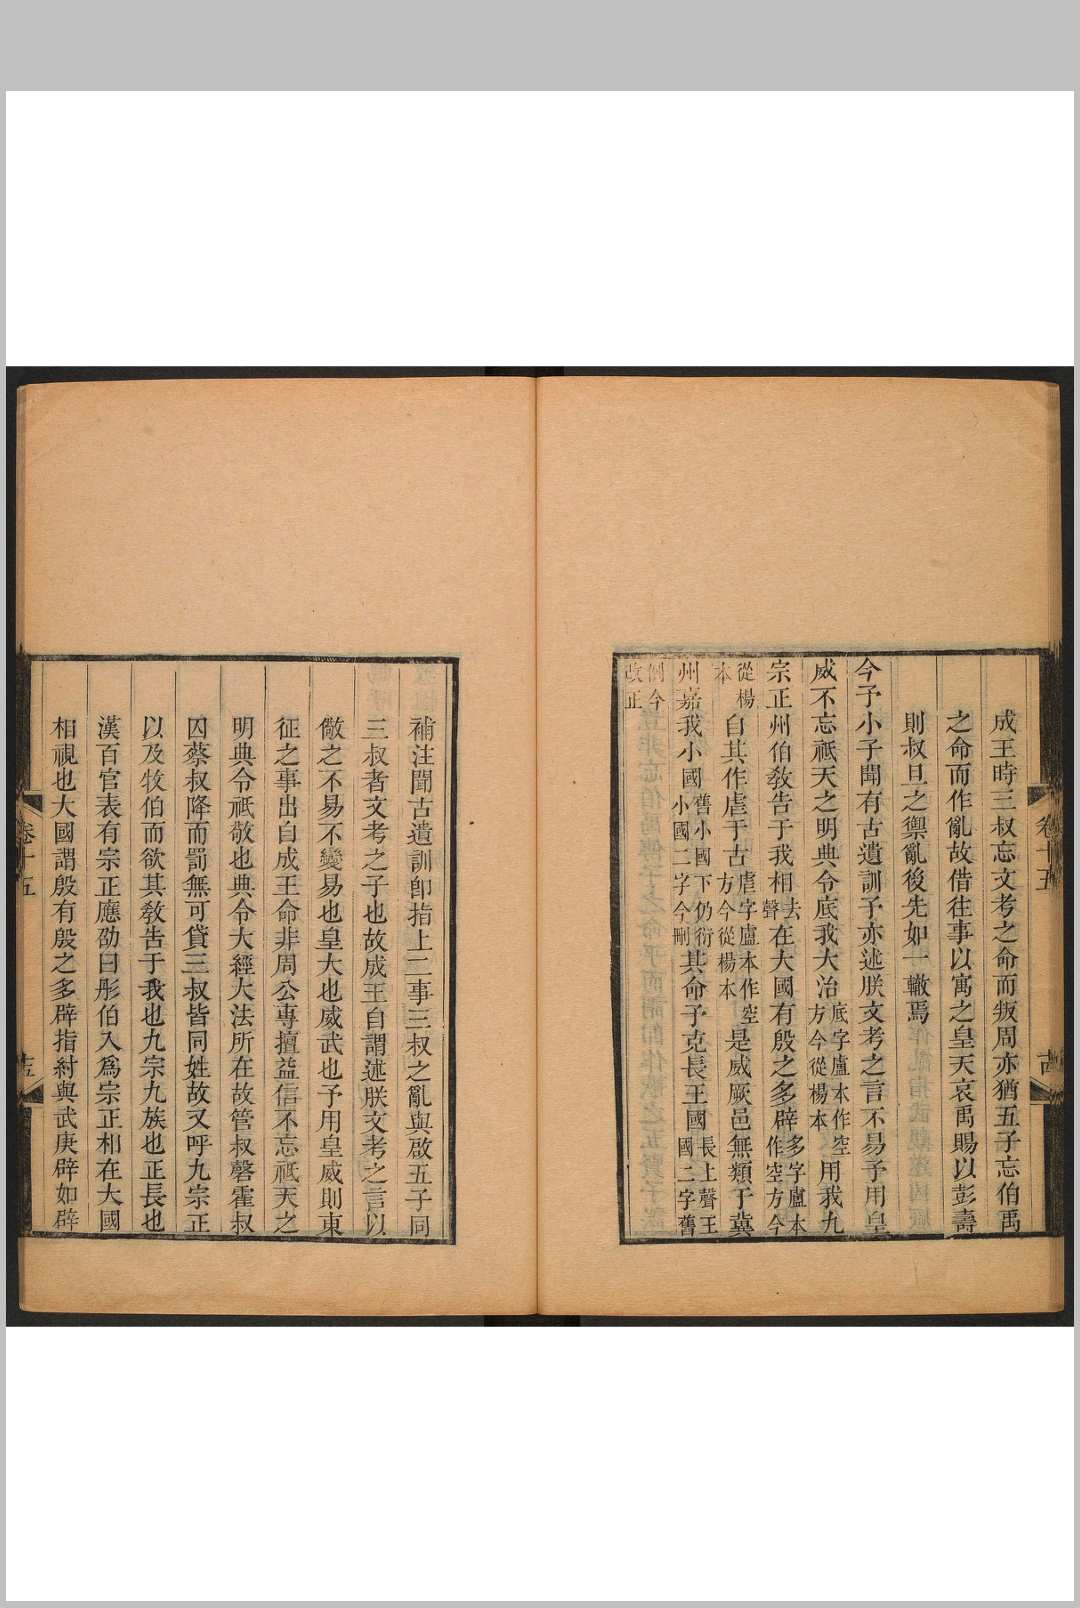 成王時三叔忘文考之命而叛周亦猶五子忘伯禹
之命而作亂故借往事以寓之皇天哀禹賜以彭壽
則叔旦之禦亂後先如一轍焉
今予小子聞有古遺訓予亦述朕文考之言不易予用皇
威不忘祗天之明典令底我大治底字盧本作空方今從楊本用我九
宗正州伯敎告于我相去聲在大國有殷之多辟多字盧本作空方今
從楊本自其作虐于古虐字盧本作空方今從楊本是威厥邑無類于冀
州嘉我小國舊小國下仍衍小國二字今刪其命予克長王國長上聲王國二字舊
倒今改正
卷十五
古
補注聞古遺訓卽指上二事三叔之亂與啟五子同
三叔者文考之子也故成王自謂述朕文考之言以
儆之不易不變易也皇大也威武也予用皇威則東
征之事出自成王命非周公專擅益信不忘祗天之
明典令祗敬也典令大經大法所在故管叔磬霍叔
囚蔡叔降而罰無可貸三叔皆同姓故又呼九宗正
以及牧伯而欲其敎告于我也九宗九族也正長也
漢百官表有宗正應劭曰彤伯入爲宗正相在大國
相視也大國謂殷有殷之多辟指紂與武庚辟如辟
卷十五